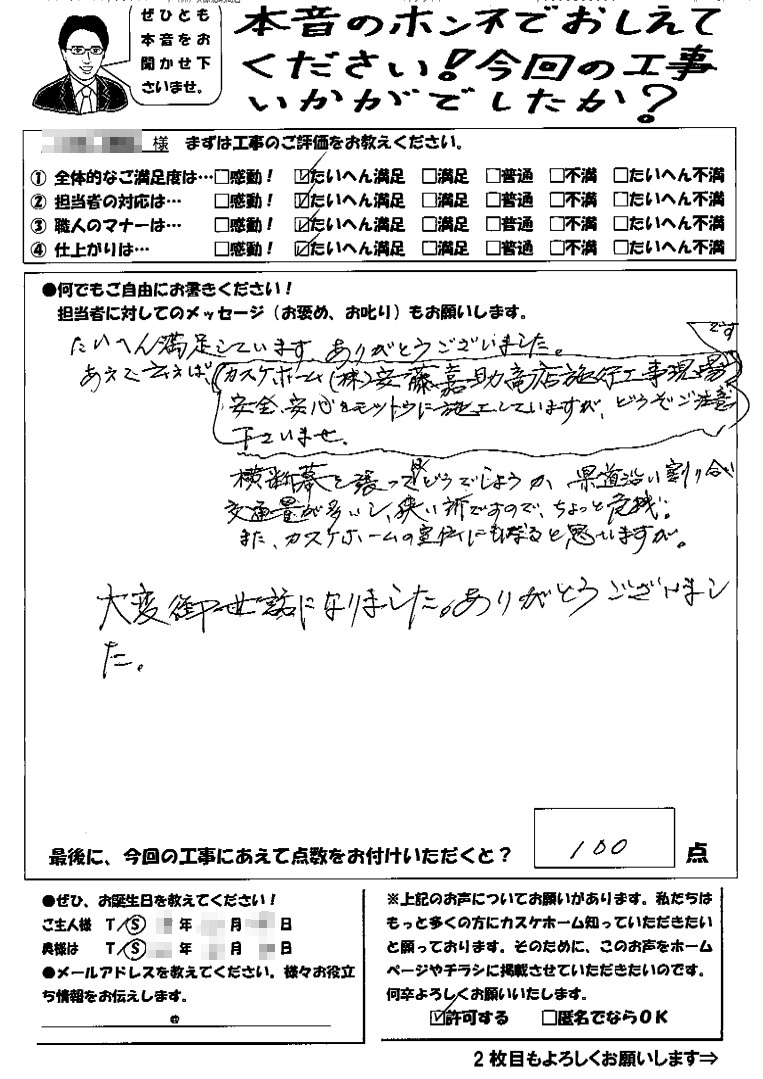 ぜひとも
本音をお
聞かせ下
さいませ。
本音のホンネでおしえて
ください!今回の工事
いかがでしたか?
様 まずは工事のご評価をお教えください。
① 全体的なご満足度は…□感動! ☑たいへん満足 □満足 □普通 □不満 □たいへん不満
② 担当者の対応は… □感動! ☑たいへん満足 □満足 □普通 □不満 □たいへん不満
③ 職人のマナーは… □感動! ☑たいへん満足 □満足 □普通 □不満 □たいへん不満
④ 仕上がりは… □感動! ☑たいへん満足 □満足 □普通 □不満 □たいへん不満
●何でもご自由にお書きください!
担当者に対してのメッセージ(お褒め、お叱り)もお願いします。
たいへん満足しています。ありがとうございました。
です
あえて言えば カスケホーム(株)安藤嘉助商店施行工事現場
安全、安心をモットウに施工していますが、どうぞご注意
下さいませ。
横断幕を張ってはどうでしょうか、県道沿い割り合い
交通量が多いし、狭い所ですので、ちょっと危機。
また、カスケホームの宣伝にもなると思いますが。
大変御世話になりました。ありがとうございまし
た。
最後に、今回の工事にあえて点数をお付けいただくと? 100 点
●ぜひ、お誕生日を教えてください!
ご主人様 T/S 年 月 日
奥様は T/S 年 月 日
●メールアドレスを教えてください。様々お役立
ち情報をお伝えします。
@
※上記のお声についてお願いがあります。私たちは
もっと多くの方にカスケホーム知っていただきたい
と願っております。そのために、このお声をホーム
ページやチラシに掲載させていただきたいのです。
何卒よろしくお願いいたします。
☑許可する □匿名でならOK
2枚目もよろしくお願いします⇒